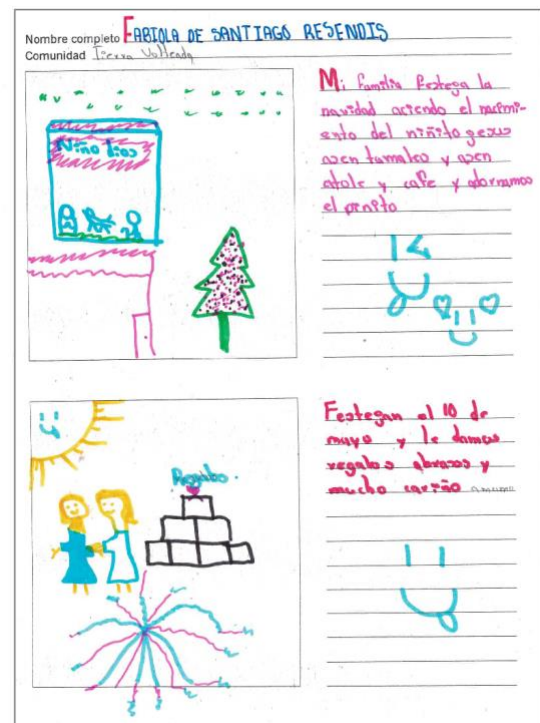 Nombre completo FABIOLA DE SANTIAGO RESENDIS
Comunidad Tierra Volteada
Niño Dios
Mi familia festega la
navidad aciendo el nacimi-
ento del niñito gesus
asen tumales y asen
atole y cafe y adornamos
el penito
Regalos.
Festegan el 10 de
mayo y le damos
regalos abrasos y
mucho cariño